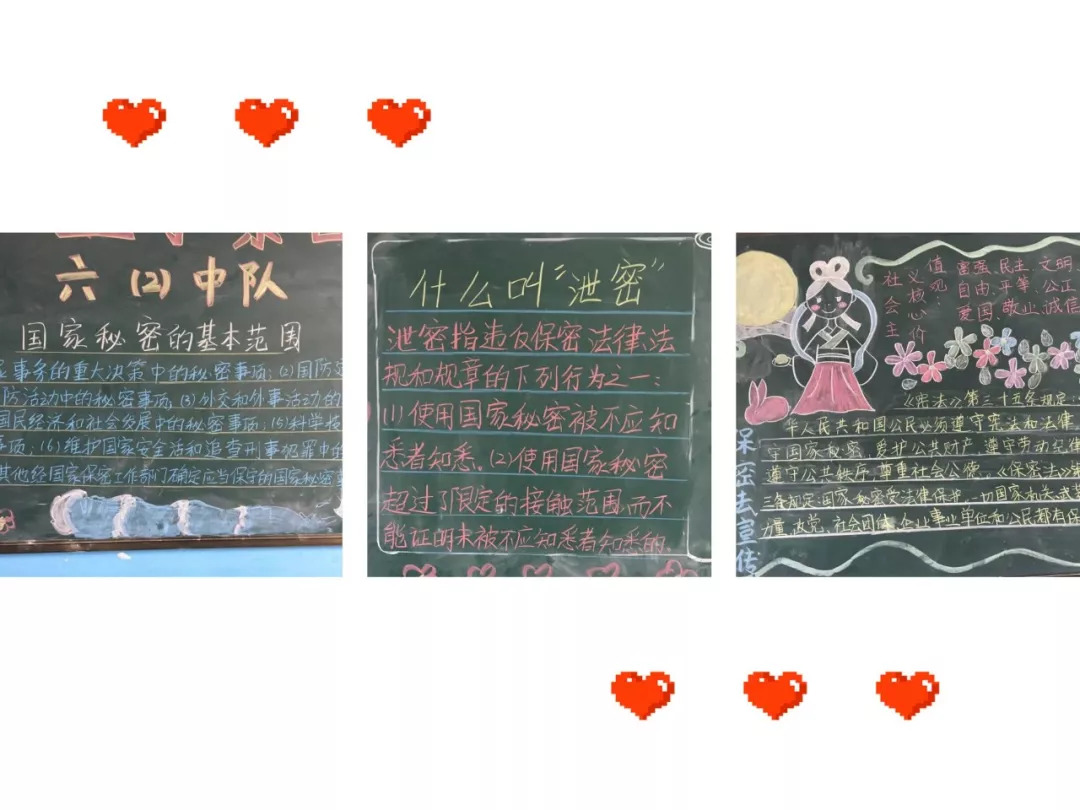 六(2)中队
国家秘密的基本范围
事务的重大决策中的秘密事项;(2)国防
防活动中的秘密事项,(3)外交和外事活动的
国民经济和社会发展中的秘密事项;(5)科学技
事项;(6)维护国家安全活和追查刑事犯罪中的
其他经国家保密工作部门确定应当保守的国家秘密
什么叫“泄密”
泄密指违反保密法律、法
规和规章的下列行为之一:
(1)使用国家秘密被不应知
悉者知悉。(2)使用国家秘密
超过了限定的接触范围,而不
能证明未被不应知悉者知悉的.
社会主
义核心价
值观:
富强、民主、文明、
自由、平等、公正
爱国、敬业、诚信
《宪法》第三十五条规定:
华人民共和国公民必须遵守宪法和法律
守国家秘密,爱护公共财产,遵守劳动纪律
遵守公共秩序,尊重社会公德。《保密法》第
三条规定:国家秘密受法律保护。一切国家机关、武
政党、社会团体、企业事业单位和公民都有保
保密法宣传